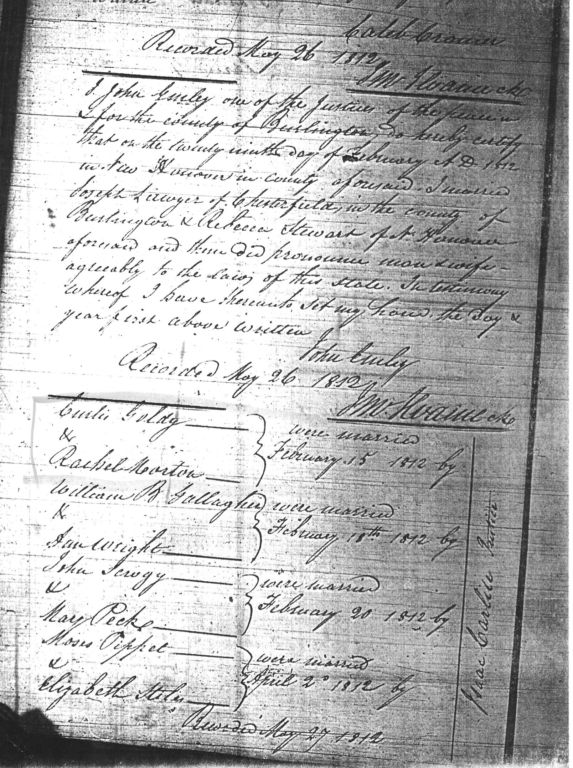 Recorded May 26 1812
I John Emley one of the Justices of the peace in
& for the county of Burlington, do hereby certify
that on the twenty ninth day of February A D 1812
in New Hanover in county aforesaid I married
Joseph Lawyer of Chesterfield, in the county of
Burlington & Rebecca Stewart of N Hanover
aforesaid and them did pronounce man & wife
agreeably to the laws of this state. In testimony
whereof I have hereunto set my hand the day &
year first above written
John Emley
Recorded May 26 1812
Curtis Goldy
&
Rachel Horton
were married
February 15 1812 by
William B Gallagher
&
Ann Wright
were married
February 18th 1812 by
John
&
Mary Peck
were married
February 20 1812 by
Moses Pippet
&
Elizabeth Stiles
were married
April 2d 1812 by
Isaac Carlile Justice
Recorded May 27 1812